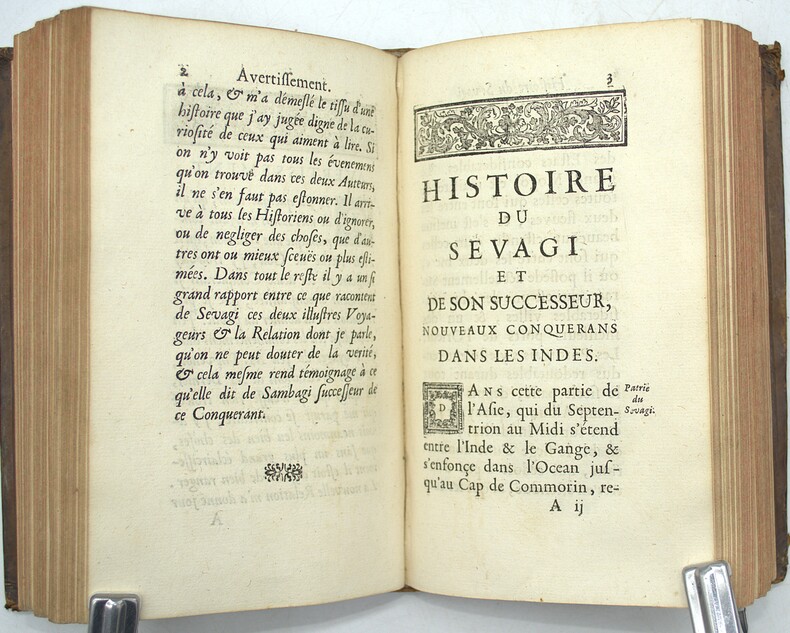 2
Avertiſſement.
à cela, & m'a démeſlé le tiſſu d'une
hiſtoire que j'ay jugée digne de la cu-
rioſité de ceux qui aiment à lire. Si
on n'y voit pas tous les évenemens
qu'on trouve dans ces deux Auteurs,
il ne s'en faut pas eſtonner. Il arri-
ve à tous les Hiſtoriens ou d'ignorer,
ou de negliger des choſes, que d'au-
tres ont ou mieux ſceuës ou plus eſti-
mées. Dans tout le reſte il y a un ſi
grand rapport entre ce que racontent
de Sevagi ces deux illuſtres Voya-
geurs & la Relation dont je parle,
qu'on ne peut douter de la verité,
& cela meſme rend témoignage à ce
qu'elle dit de Sambagi ſucceſſeur de
ce Conquerant.
3
HISTOIRE
DU
SEVAGI
ET
DE SON SUCCESSEUR,
NOUVEAUX CONQUERANS
DANS LES INDES.
DANS cette partie de
l'Aſie, qui du Septen-
trion au Midi s'étend
entre l'Inde & le Gange, &
s'enfonçe dans l'Ocean juſ-
qu'au Cap de Commorin, re-
Patrie
du
Sevagi.
A ij